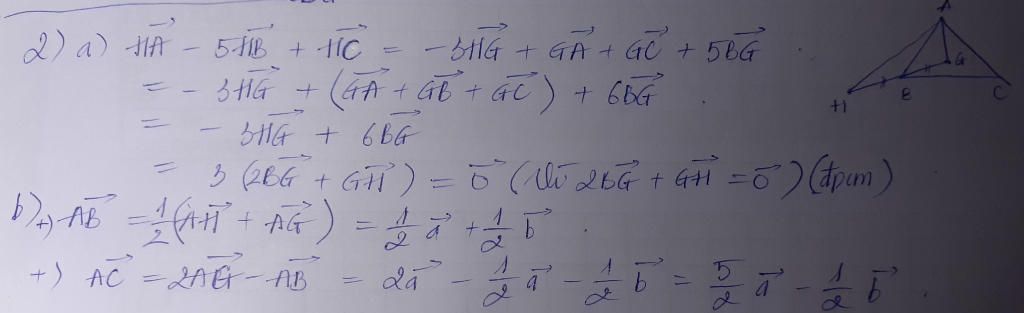 2) a) $\overrightarrow{HA} - 5\overrightarrow{HB} + \overrightarrow{HC} = -3\overrightarrow{HG} + \overrightarrow{GA} + \overrightarrow{GC} + 5\overrightarrow{BG}$
$= -3\overrightarrow{HG} + (\overrightarrow{GA} + \overrightarrow{GB} + \overrightarrow{GC}) + 6\overrightarrow{BG}$
$= -3\overrightarrow{HG} + 6\overrightarrow{BG}$
$= 3(2\overrightarrow{BG} + \overrightarrow{GH}) = \overrightarrow{0}$ (Vì $2\overrightarrow{BG} + \overrightarrow{GH} = \overrightarrow{0}$) (đpcm)
b) +) $\overrightarrow{AB} = \frac{1}{2}(\overrightarrow{AH} + \overrightarrow{AG}) = \frac{1}{2}\overrightarrow{a} + \frac{1}{2}\overrightarrow{b}$
+) $\overrightarrow{AC} = 2\overrightarrow{AG} - \overrightarrow{AB} = 2\overrightarrow{a} - \frac{1}{2}\overrightarrow{a} - \frac{1}{2}\overrightarrow{b} = \frac{5}{2}\overrightarrow{a} - \frac{1}{2}\overrightarrow{b}$.
A
G
H
B
C